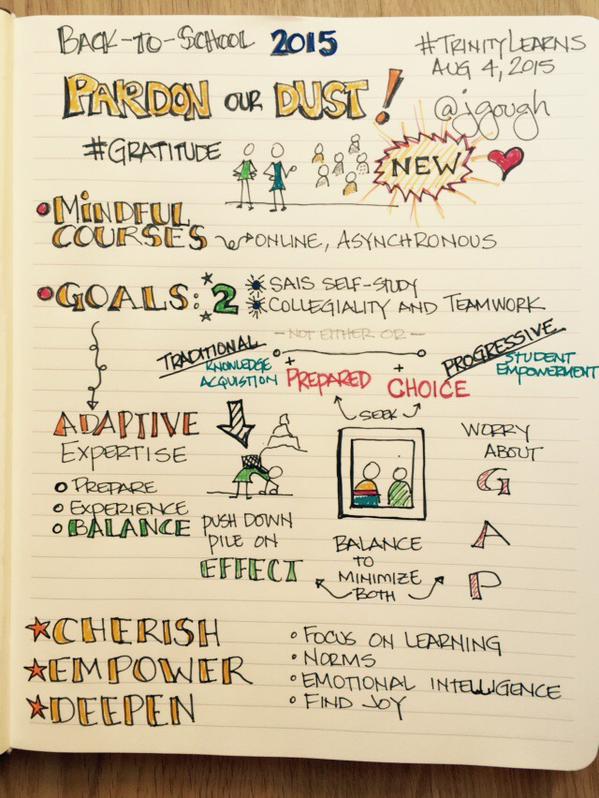 BACK-TO-SCHOOL 2015
#TRINITYLEARNS
AUG 4, 2015
PARDON OUR DUST!
@jgough
#GRATITUDE
NEW
MINDFUL
COURSES
ONLINE, ASYNCHRONOUS
GOALS: 2
SAIS SELF-STUDY
COLLEGIALITY AND TEAMWORK
- NOT EITHER OR -
TRADITIONAL
PROGRESSIVE
KNOWLEDGE
ACQUISTION
+ PREPARED
+ CHOICE
STUDENT
EMPOWERMENT
SEEK
ADAPTIVE
EXPERTISE
PREPARE
EXPERIENCE
BALANCE
PUSH DOWN
PILE ON
EFFECT
BALANCE
TO
MINIMIZE
BOTH
WORRY
ABOUT
G
A
P
CHERISH
EMPOWER
DEEPEN
FOCUS ON LEARNING
NORMS
EMOTIONAL INTELLIGENCE
FIND JOY